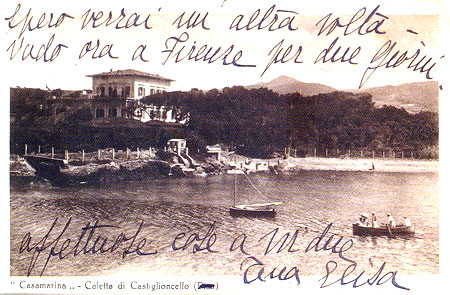 Spero verrai un altra volta -
vado ora a Firenze per due giorni.
affettuose cose a
due
Elisa
" Casamarina „ - Caletta di Castiglioncello